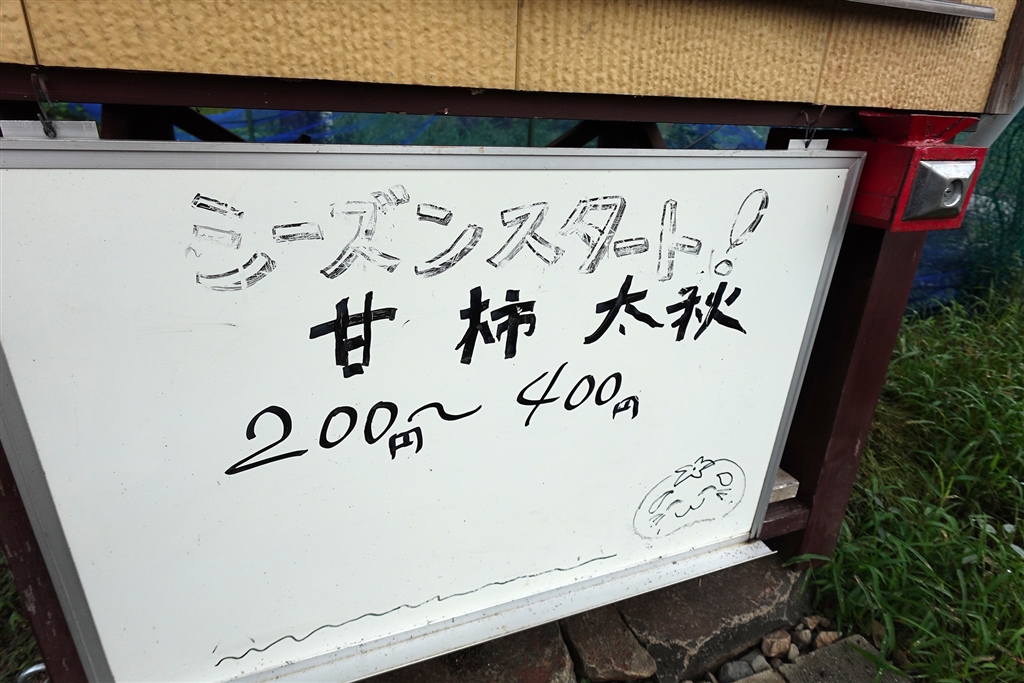 シーズンスタート!
甘柿 太秋
200円〜400円